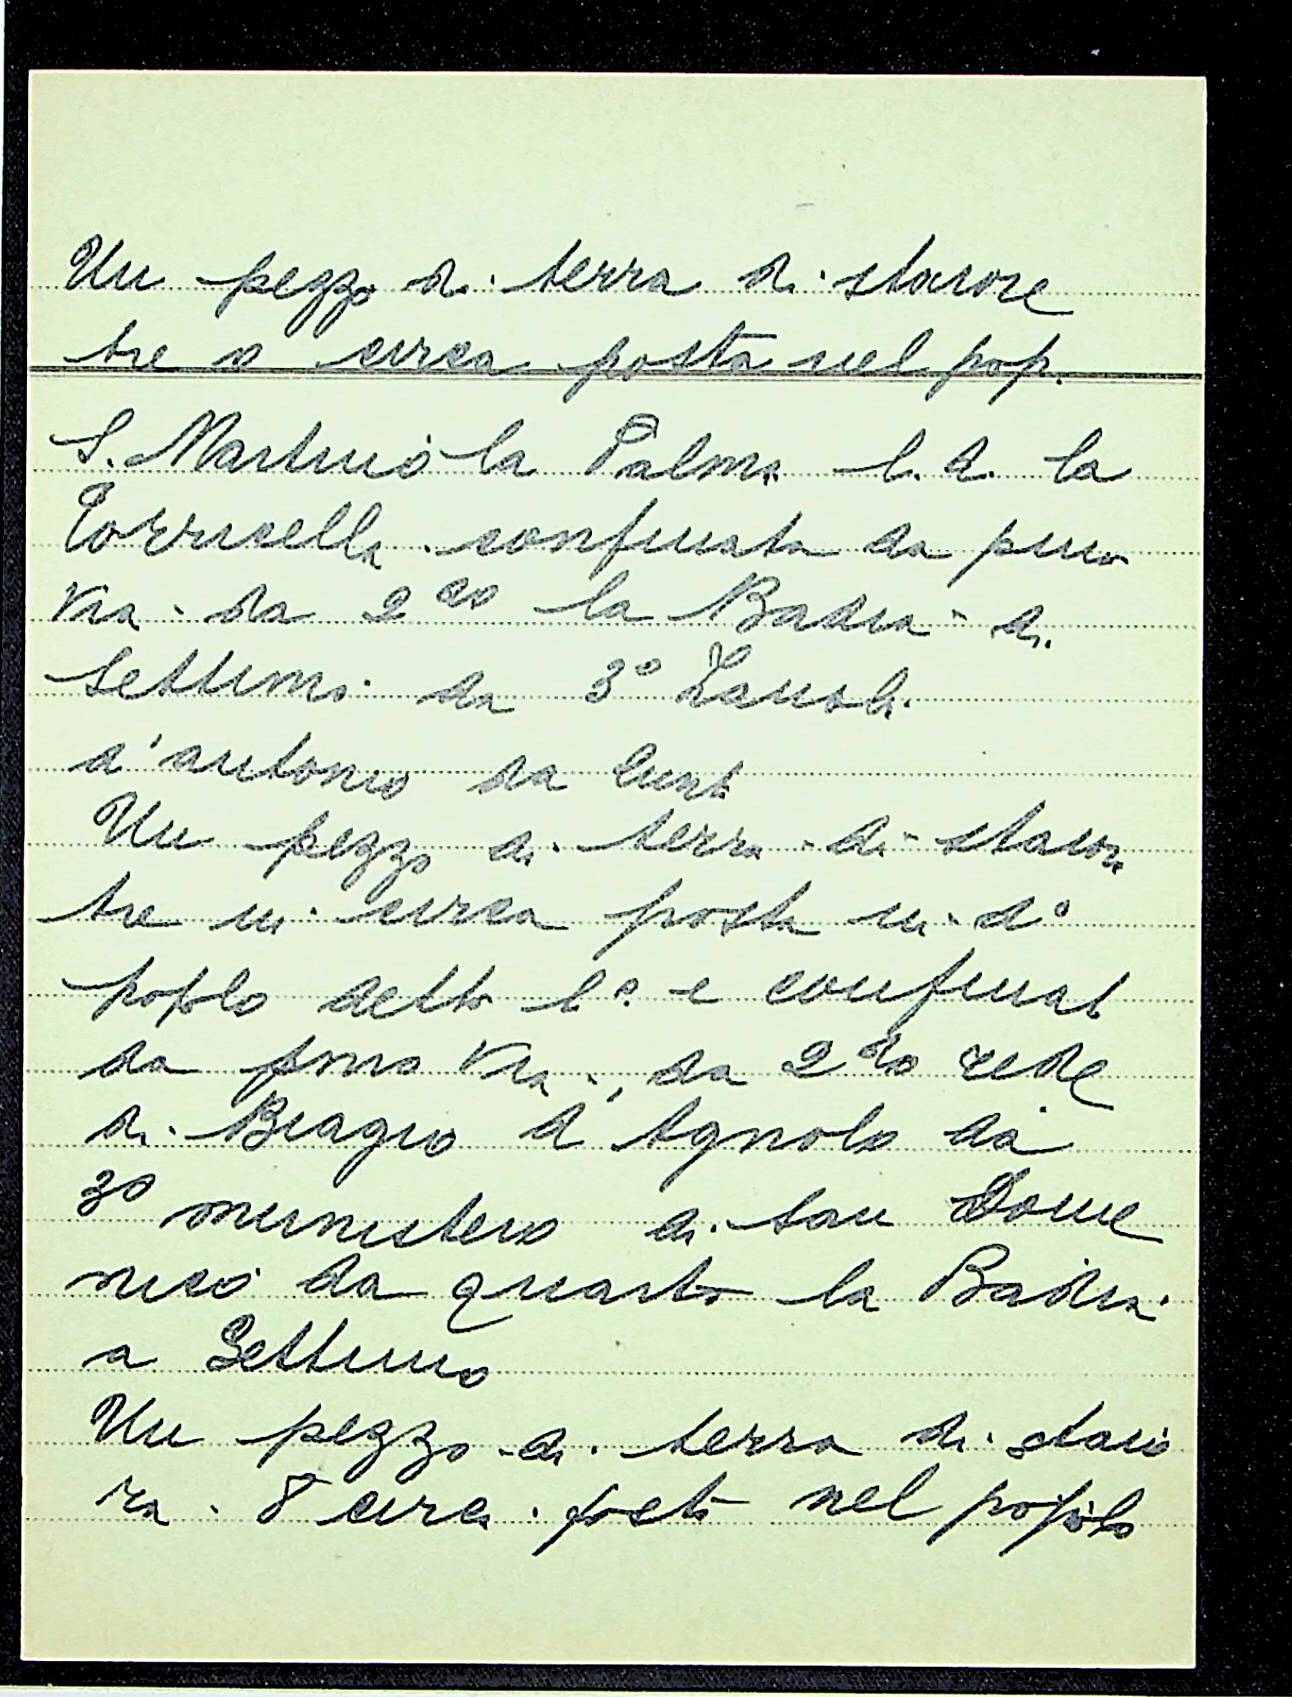 Un pezzo di terra di staiore
tre o circa posta nel pop.
S. Martino la Palma l. d. la
Torricella confinata da primo
Via da 2do la Badia di
Settimo da 3º Zanobi
d'antonio da
Un pezzo di terra di staiora
tre in circa posta in dº
popolo detto lº e confinat
da primo Via, da 2do rede
di Biagio d'Agnolo da
3º munistero di San Dome
nico da quarto la Badia
a Settimo
Un pezzo di terra di staio
ra 8 circa posto nel popolo